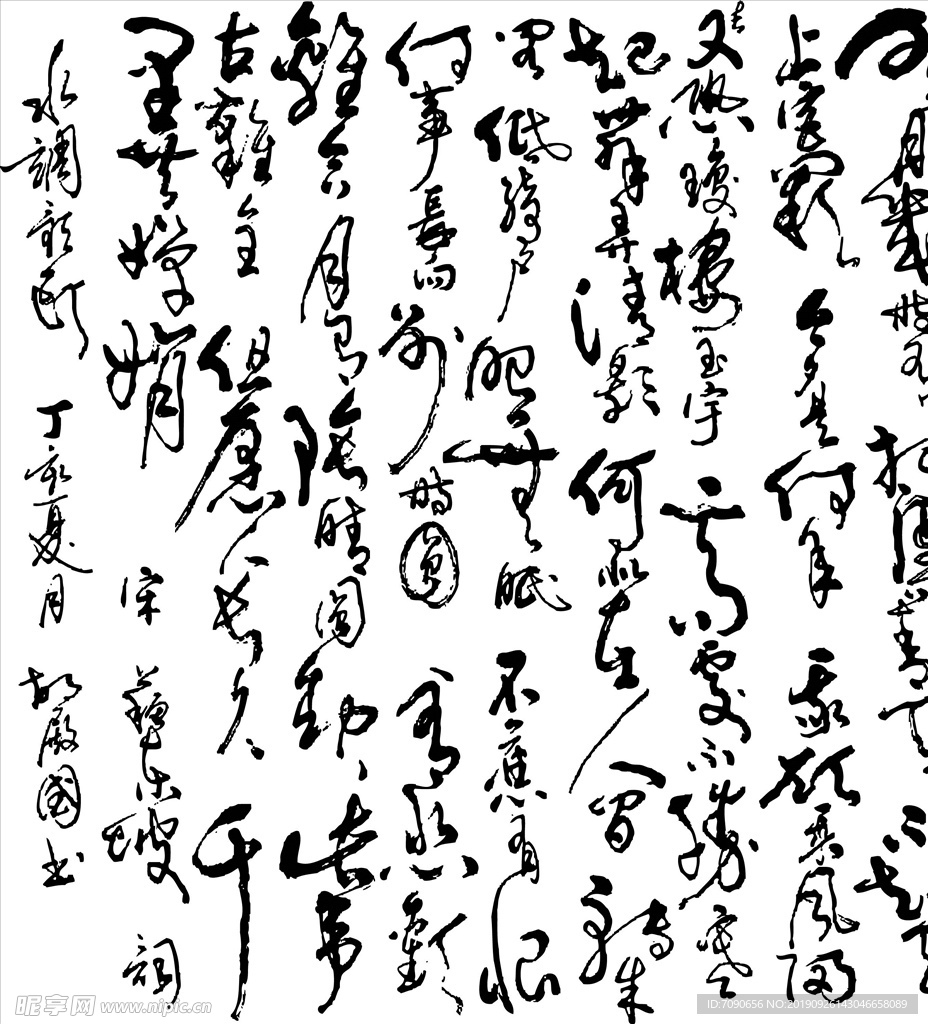 明月幾時有把酒問青天不知天
上宮闕今夕是何年我欲乘風歸
去又恐瓊樓玉宇高處不勝寒
起舞弄清影何似在人間轉朱
閣低綺户照無眠不應有恨
何事長向别時圓有悲歡
離合月有陰晴圓缺此事
古難全但願人長久千
里共嬋娟宋蘇東坡詞
水調歌頭丁亥夏月胡殿國书
昵享网 www.nipic.cn
ID:7090656 NO:20190926143046658089